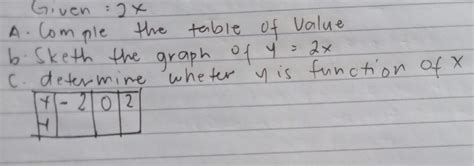 Given : 2x
A. Comple the table of Value
b. Sketh the graph of y = 2x
C. determine wheter y is function of x
x | -2 | 0 | 2
y